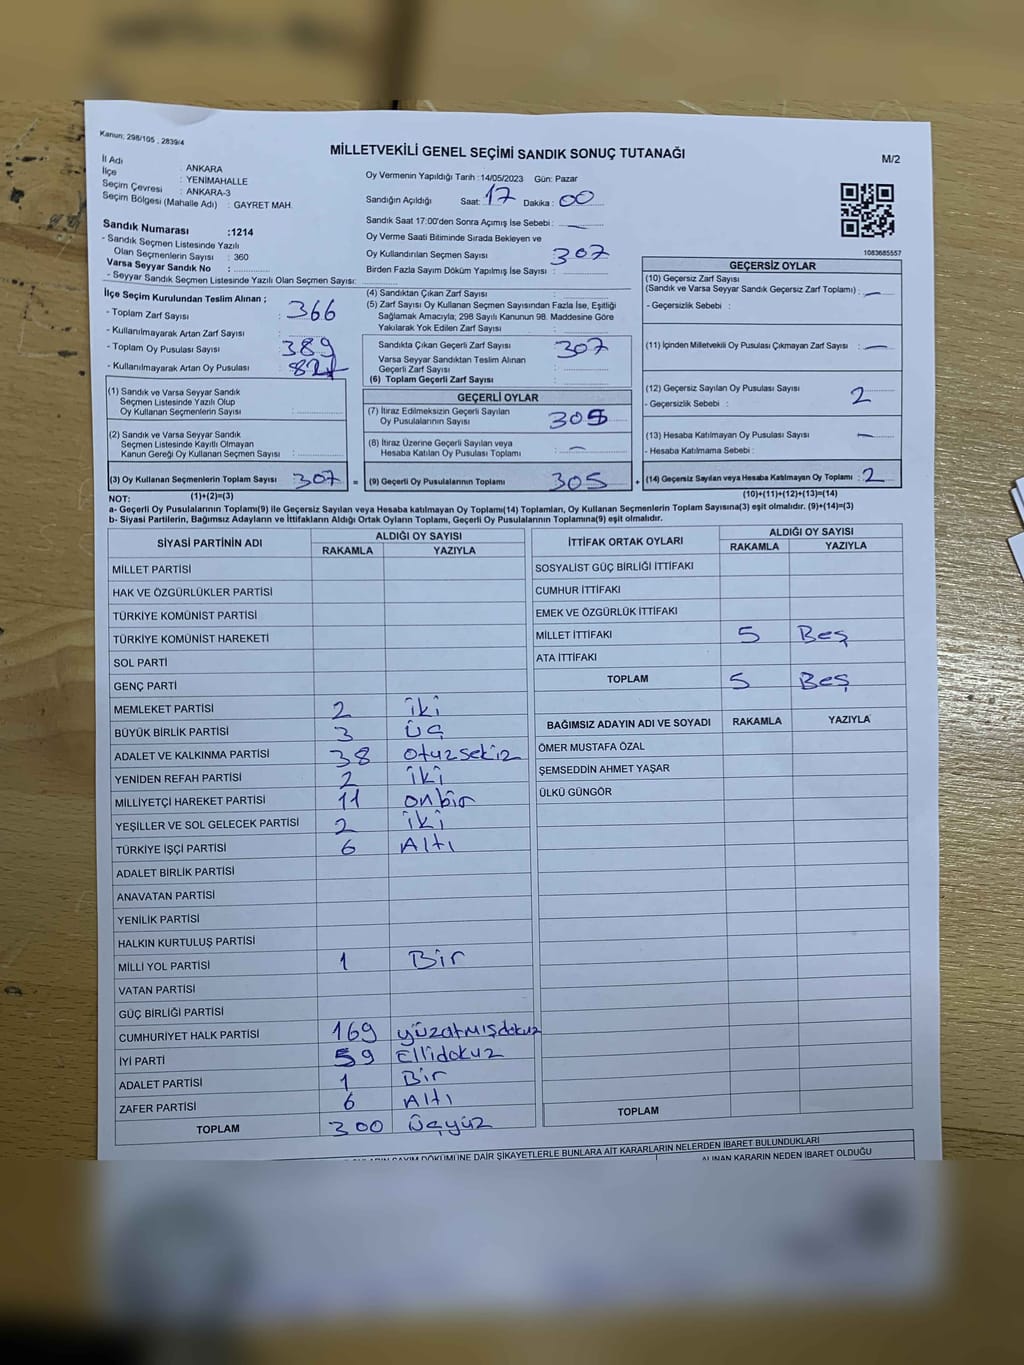 Kanun: 298/105 , 2839/4
MİLLETVEKİLİ GENEL SEÇİMİ SANDIK SONUÇ TUTANAĞI
M/2
İl Adı : ANKARA
İlçe : YENİMAHALLE
Seçim Çevresi : ANKARA-3
Seçim Bölgesi (Mahalle Adı) : GAYRET MAH.
Oy Vermenin Yapıldığı Tarih :14/05/2023 Gün: Pazar
Sandığın Açıldığı Saat: 17 Dakika : 00
Sandık Saat 17:00'den Sonra Açımış İse Sebebi :
Oy Verme Saati Bitiminde Sırada Bekleyen ve
Oy Kullandırılan Seçmen Sayısı 307
Birden Fazla Sayım Döküm Yapılmış İse Sayısı :
1083685557
Sandık Numarası :1214
- Sandık Seçmen Listesinde Yazılı
Olan Seçmenlerin Sayısı : 360
Varsa Seyyar Sandık No :
- Seyyar Sandık Seçmen Listesinde Yazılı Olan Seçmen Sayısı:
İlçe Seçim Kurulundan Teslim Alınan ;
- Toplam Zarf Sayısı : 366
- Kullanılmayarak Artan Zarf Sayısı :
- Toplam Oy Pusulası Sayısı : 389
- Kullanılmayarak Artan Oy Pusulası :
(1) Sandık ve Varsa Seyyar Sandık
Seçmen Listesinde Yazılı Olup
Oy Kullanan Seçmenlerin Sayısı :
(2) Sandık ve Varsa Seyyar Sandık
Seçmen Listesinde Kayıtlı Olmayan
Kanun Gereği Oy Kullanan Seçmen Sayısı :
(3) Oy Kullanan Seçmenlerin Toplam Sayısı : 307 =
(4) Sandıktan Çıkan Zarf Sayısı :
(5) Zarf Sayısı Oy Kullanan Seçmen Sayısından Fazla İse, Eşitliği
Sağlamak Amacıyla; 298 Sayılı Kanunun 98. Maddesine Göre
Yakılarak Yok Edilen Zarf Sayısı :
Sandıkta Çıkan Geçerli Zarf Sayısı : 307
Varsa Seyyar Sandıktan Teslim Alınan
Geçerli Zarf Sayısı :
(6) Toplam Geçerli Zarf Sayısı :
GEÇERLİ OYLAR
(7) İtiraz Edilmeksizin Geçerli Sayılan
Oy Pusulalarının Sayısı : 305
(8) İtiraz Üzerine Geçerli Sayılan veya
Hesaba Katılan Oy Pusulası Toplamı : –
(9) Geçerli Oy Pusulalarının Toplamı : 305 +
GEÇERSİZ OYLAR
(10) Geçersiz Zarf Sayısı
(Sandık ve Varsa Seyyar Sandık Geçersiz Zarf Toplamı) : –
- Geçersizlik Sebebi :
(11) İçinden Milletvekili Oy Pusulası Çıkmayan Zarf Sayısı : –
(12) Geçersiz Sayılan Oy Pusulası Sayısı : 2
- Geçersizlik Sebebi :
(13) Hesaba Katılmayan Oy Pusulası Sayısı : –
- Hesaba Katılmama Sebebi :
(14) Geçersiz Sayılan veya Hesaba Katılmayan Oy Toplamı : 2
NOT: (1)+(2)=(3) (10)+(11)+(12)+(13)=(14)
a- Geçerli Oy Pusulalarının Toplamı(9) ile Geçersiz Sayılan veya Hesaba katılmayan Oy Toplamı(14) Toplamları, Oy Kullanan Seçmenlerin Toplam Sayısına(3) eşit olmalıdır. (9)+(14)=(3)
b- Siyasi Partilerin, Bağımsız Adayların ve İttifakların Aldığı Ortak Oyların Toplamı, Geçerli Oy Pusulalarının Toplamına(9) eşit olmalıdır.
SİYASİ PARTİNİN ADI ALDIĞI OY SAYISI
RAKAMLA YAZIYLA
MİLLET PARTİSİ
HAK VE ÖZGÜRLÜKLER PARTİSİ
TÜRKİYE KOMÜNİST PARTİSİ
TÜRKİYE KOMÜNİST HAREKETİ
SOL PARTİ
GENÇ PARTİ
MEMLEKET PARTİSİ 2 iki
BÜYÜK BİRLİK PARTİSİ 3 üç
ADALET VE KALKINMA PARTİSİ 38 otuzsekiz
YENİDEN REFAH PARTİSİ 2 iki
MİLLİYETÇİ HAREKET PARTİSİ 11 onbir
YEŞİLLER VE SOL GELECEK PARTİSİ 2 iki
TÜRKİYE İŞÇİ PARTİSİ 6 Altı
ADALET BİRLİK PARTİSİ
ANAVATAN PARTİSİ
YENİLİK PARTİSİ
HALKIN KURTULUŞ PARTİSİ
MİLLİ YOL PARTİSİ 1 Bir
VATAN PARTİSİ
GÜÇ BİRLİĞİ PARTİSİ
CUMHURİYET HALK PARTİSİ 169 yüzatmışdokuz
İYİ PARTİ 59 Ellidokuz
ADALET PARTİSİ 1 Bir
ZAFER PARTİSİ 6 Altı
TOPLAM 300 üçyüz
İTTİFAK ORTAK OYLARI ALDIĞI OY SAYISI
RAKAMLA YAZIYLA
SOSYALİST GÜÇ BİRLİĞİ İTTİFAKI
CUMHUR İTTİFAKI
EMEK VE ÖZGÜRLÜK İTTİFAKI
MİLLET İTTİFAKI 5 Beş
ATA İTTİFAKI
TOPLAM 5 Beş
BAĞIMSIZ ADAYIN ADI VE SOYADI RAKAMLA YAZIYLA
ÖMER MUSTAFA ÖZAL
ŞEMSEDDİN AHMET YAŞAR
ÜLKÜ GÜNGÖR
TOPLAM
SAYIM DÖKÜMÜNE DAİR ŞİKAYETLERLE BUNLARA AİT KARARLARIN NELERDEN İBARET BULUNDUKLARI
ALINAN KARARIN NEDEN İBARET OLDUĞU